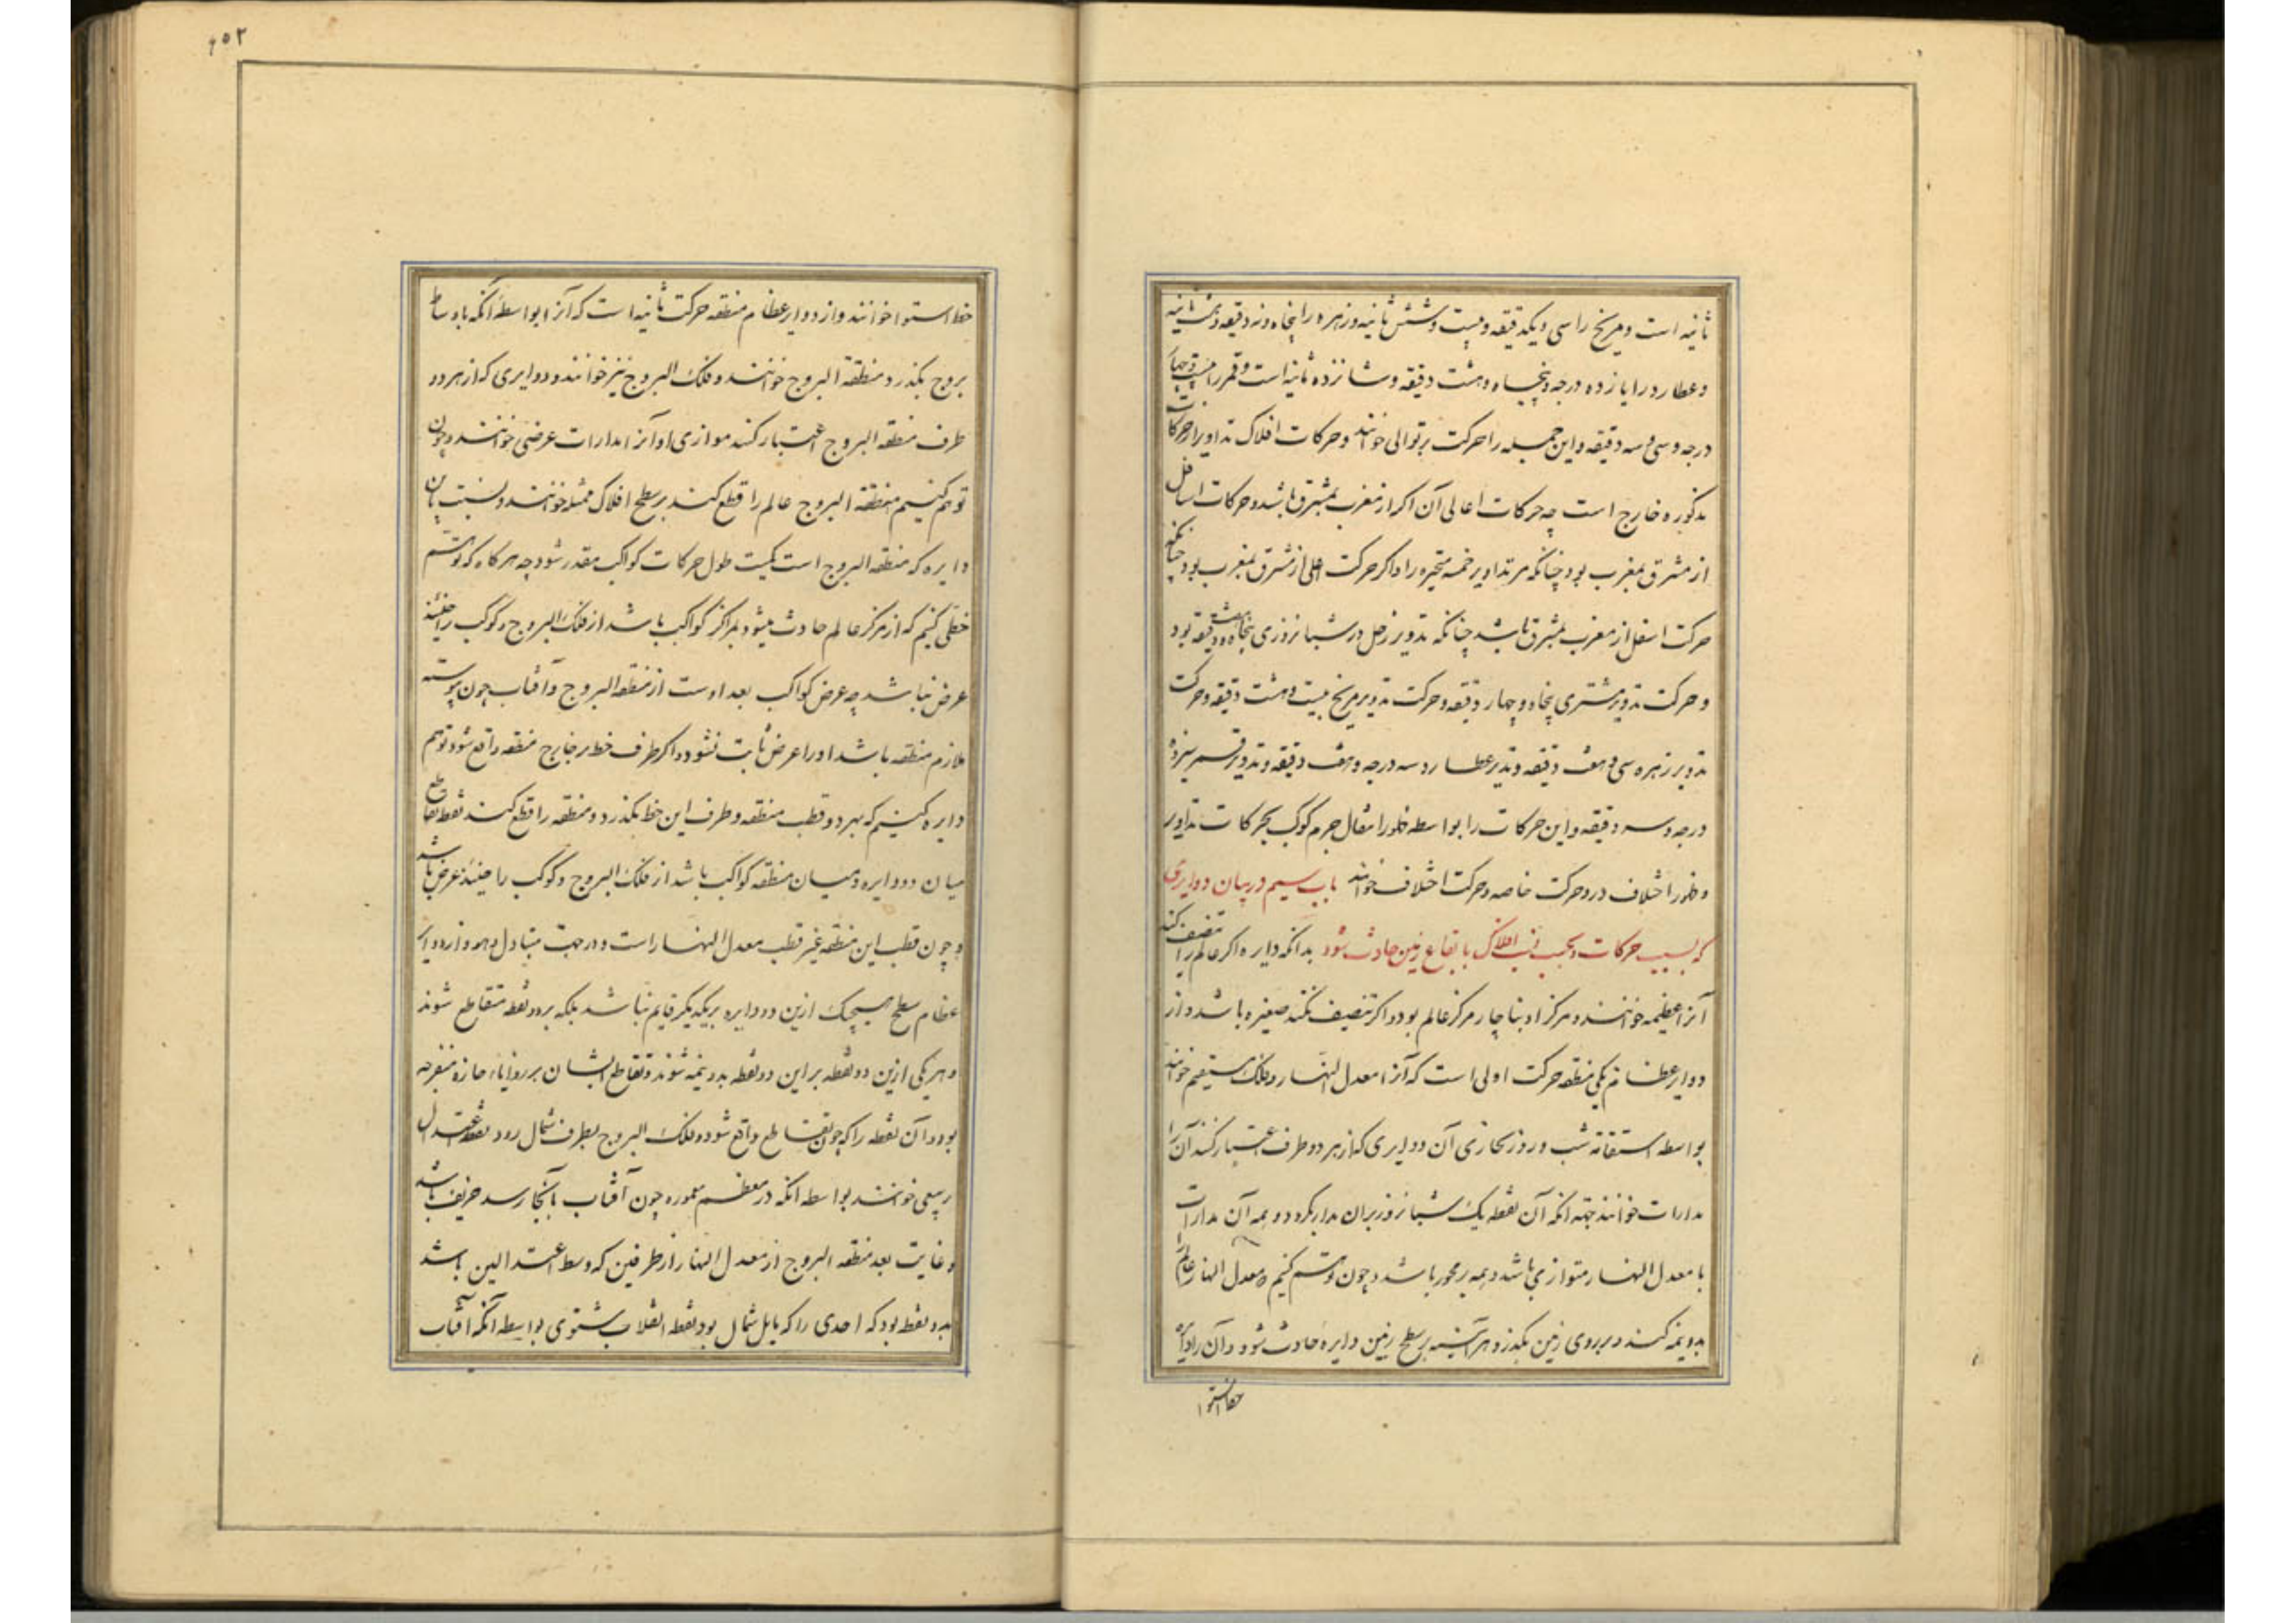 ثانیه است و مریخ را سی و یکدقیقه و بیست و شش ثانیه و زهره را پنجاه و نه دقیقه و هشت ثانیه
و عطارد را پانزده درجه و پنجاه و هشت دقیقه و شانزده ثانیه است و قمر را بیست و چهار
درجه و سی و سه دقیقه و این جمله را حرکت بر توالی خوانند و حرکات افلاک تداویر از حرکات
مذکوره خارج است چه حرکات اعالی آن اگر از مغرب بمشرق باشد و حرکات اسافل
از مشرق بمغرب بود چنانکه مر تداویر خمسه متحیره را و اگر حرکت اعلی از مشرق بمغرب بود چنانکه
حرکت اسفل از مغرب بمشرق باشد چنانکه تدویر زحل در شبانروزی پنجاه و هفت دقیقه بود
و حرکت تدویر مشتری پنجاه و چهار دقیقه و حرکت تدویر مریخ بیست و هشت دقیقه و حرکت
تدویر زهره سی و هفت دقیقه و تدویر عطارد سه درجه و هفت دقیقه و تدویر قمر سیزده
درجه و سه دقیقه و این حرکات را بواسطه ظهور انتقال جرم کوکب بحرکات تداویر
و ظهور اختلاف در و حرکت خاصه و حرکت اختلاف خوانند باب سیم در بیان دوایری
که بسبب حرکات و بحسب افلاک با بقاع زمین حادث شود بدانکه دایره اگر عالم را تنصیف کند
آنرا عظیمه خوانند و مرکز او بناچار مرکز عالم بود و اگر تنصیف نکند صغیره باشد و از
دوایر عظام یکی منطقه حرکت اولی است که آنرا معدل النهار و فلک مستقیم خوانند
بواسطه استقامه شب و روز بمحاذی آن دوایری که از هر دو طرف اعتبار کنند آن را
مدارات خوانند جهه آنکه آن نقطه یک شبانروز بران مدار بگردد و همه آن مدارات
با معدل النهار متوازی باشد و همه بر محور باشد و چون توهم کنیم که معدل النهار عالم را
بدو نیمه کند و بر روی زمین بگذرد هر آینه بر سطح زمین دایره حادث شود و آن را دایره
خط استوا
۶۵۲
خط استوا خوانند و از دوایر عظام منطقه حرکت ثانیه است که آنرا بواسطه آنکه باوساط
بروج بگذرد منطقة البروج خوانند و فلک البروج نیز خوانند و دوایری که از هر دو
طرف منطقه البروج اعتبار کنند موازی او آنرا مدارات عرضی خوانند و چون
توهم کنیم منطقة البروج عالم را قطع کند بر سطح افلاک ممثله خوانند و نسبت بان
دایره که منطقه البروج است کمیت طول حرکات کواکب مقدر شود چه هرگاه که توهم
خطی کنیم که از مرکز عالم حادث میشود بمراکز کواکب باشد از فلک البروج و کوکب را حینئذ
عرض نباشد چه عرض کواکب بعد اوست از منطقه البروج و آفتاب چون پیوسته
ملازم منطقه باشد او را عرض ثابت نشود و اگر طرف خط بر خارج منطقه واقع شود توهم
دایره کنیم که بهر دو قطب منطقه و طرف این خط بگذرد و منطقه را قطع کند نقطه تقاطع
میان دو دایره و میان منطقه کواکب باشد از فلک البروج و کوکب را حینئذ عرض باشد
و چون قطب این منطقه غیر قطب معدل النهار است و در جهت متبادل هر دو از دوایر
عظام سطح هیچیک ازین دو دایره بریکدیگر قایم نباشد بلکه بر دو نقطه متقاطع شوند
و هر یکی ازین دو نقطه براین دو نقطه بدو نیمه شوند و تقاطع ایشان بر زوایاء حاده منفرجه
بود و آن نقطه را که چون تقاطع واقع شود و فلک البروج بطرف شمال رود نقطه اعتدال
ربیعی خوانند بواسطه آنکه در معظم معموره چون آفتاب بآنجا رسد خریف باشد
و غایت بعد منطقه البروج از معدل النهار از طرفین که وسط اعتدالین باشد
بدو نقطه بود که احدی را که مایل شمال بود نقطه انقلاب شتوی بواسطه آنکه آفتاب